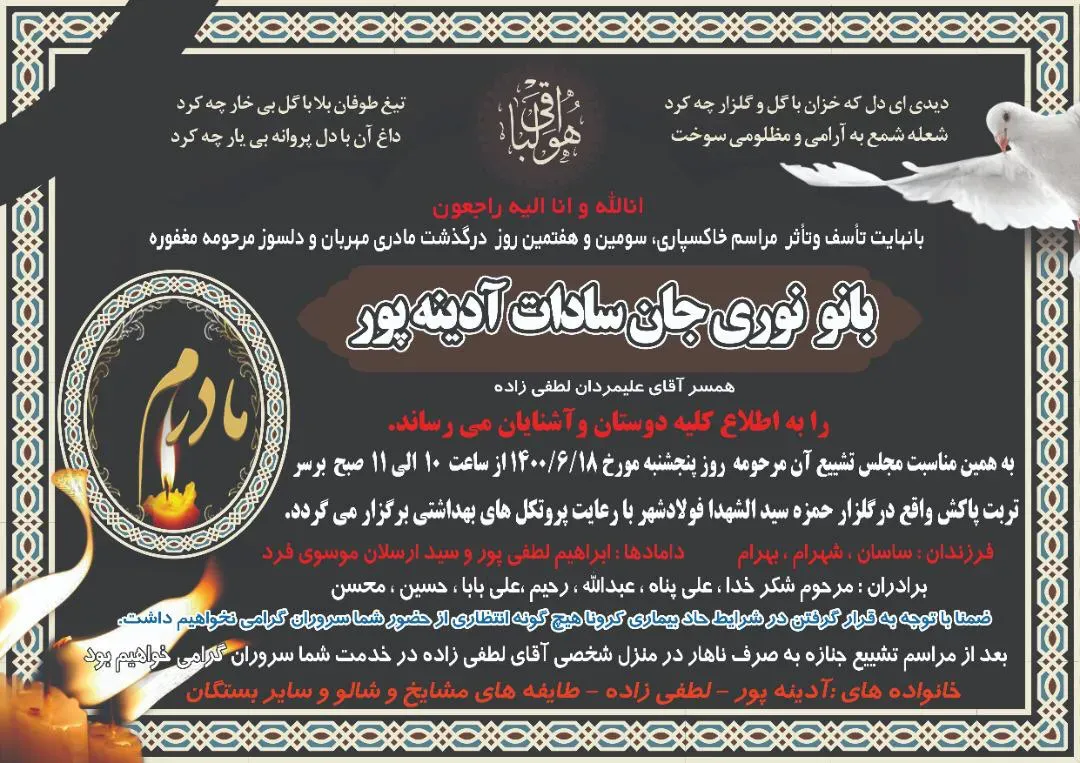 هوالباقی
دیدی ای دل که خزان با گل و گلزار چه کرد
تیغ طوفان بلا با گل بی خار چه کرد
شعله شمع به آرامی و مظلومی سوخت
داغ آن با دل پروانه بی یار چه کرد
انالله و انا الیه راجعون
بانهایت تأسف وتأثر مراسم خاکسپاری، سومین و هفتمین روز درگذشت مادری مهربان و دلسوز مرحومه مغفوره
بانو نوری جان سادات آدینه پور
همسر آقای علیمردان لطفی زاده
را به اطلاع کلیه دوستان وآشنایان می رساند.
مادرم
به همین مناسبت مجلس تشییع آن مرحومه روز پنجشنبه مورخ ۱۴۰۰/۶/۱۸ از ساعت ۱۰ الی ۱۱ صبح برسر
تربت پاکش واقع درگلزار حمزه سید الشهدا فولادشهر با رعایت پروتکل های بهداشتی برگزار می گردد.
فرزندان : ساسان ، شهرام ، بهرام دامادها : ابراهیم لطفی پور و سید ارسلان موسوی فرد
برادران : مرحوم شکر خدا ، علی پناه ، عبدالله ، رحیم ،علی بابا ، حسین ، محسن
ضمنا با توجه به قرار گرفتن در شرایط حاد بیماری کرونا هیچ گونه انتظاری از حضور شما سروران گرامی نخواهیم داشت.
بعد از مراسم تشییع جنازه به صرف ناهار در منزل شخصی آقای لطفی زاده در خدمت شما سروران گرامی خواهیم بود
خانواده های :آدینه پور - لطفی زاده - طایفه های مشایخ و شالو و سایر بستگان